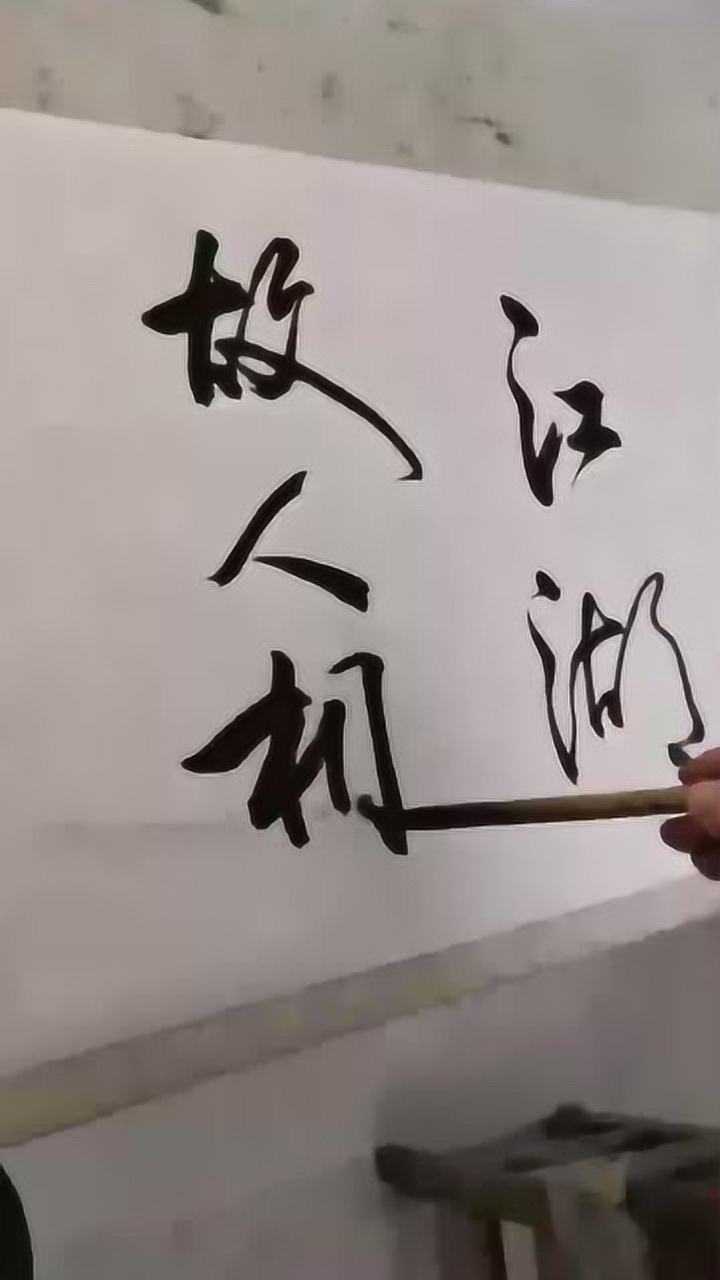 江湖
故人相